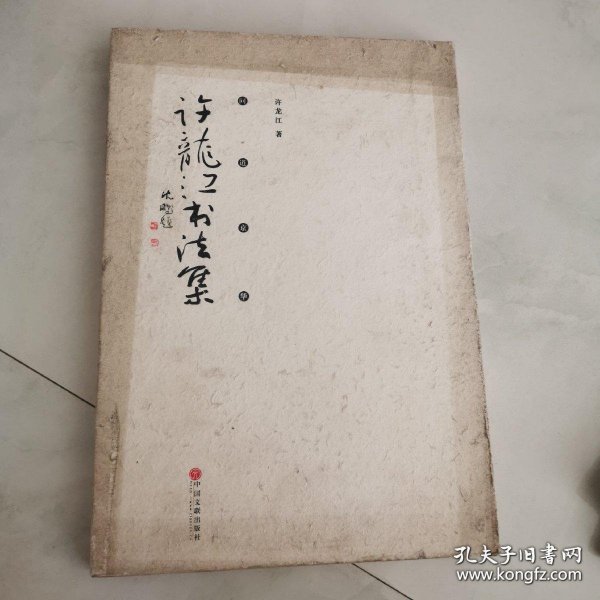 许龙江 著
回道京华
许龍江书法集
沈鹏题
中国文联出版社
孔夫子旧书网
www.kongfz.com